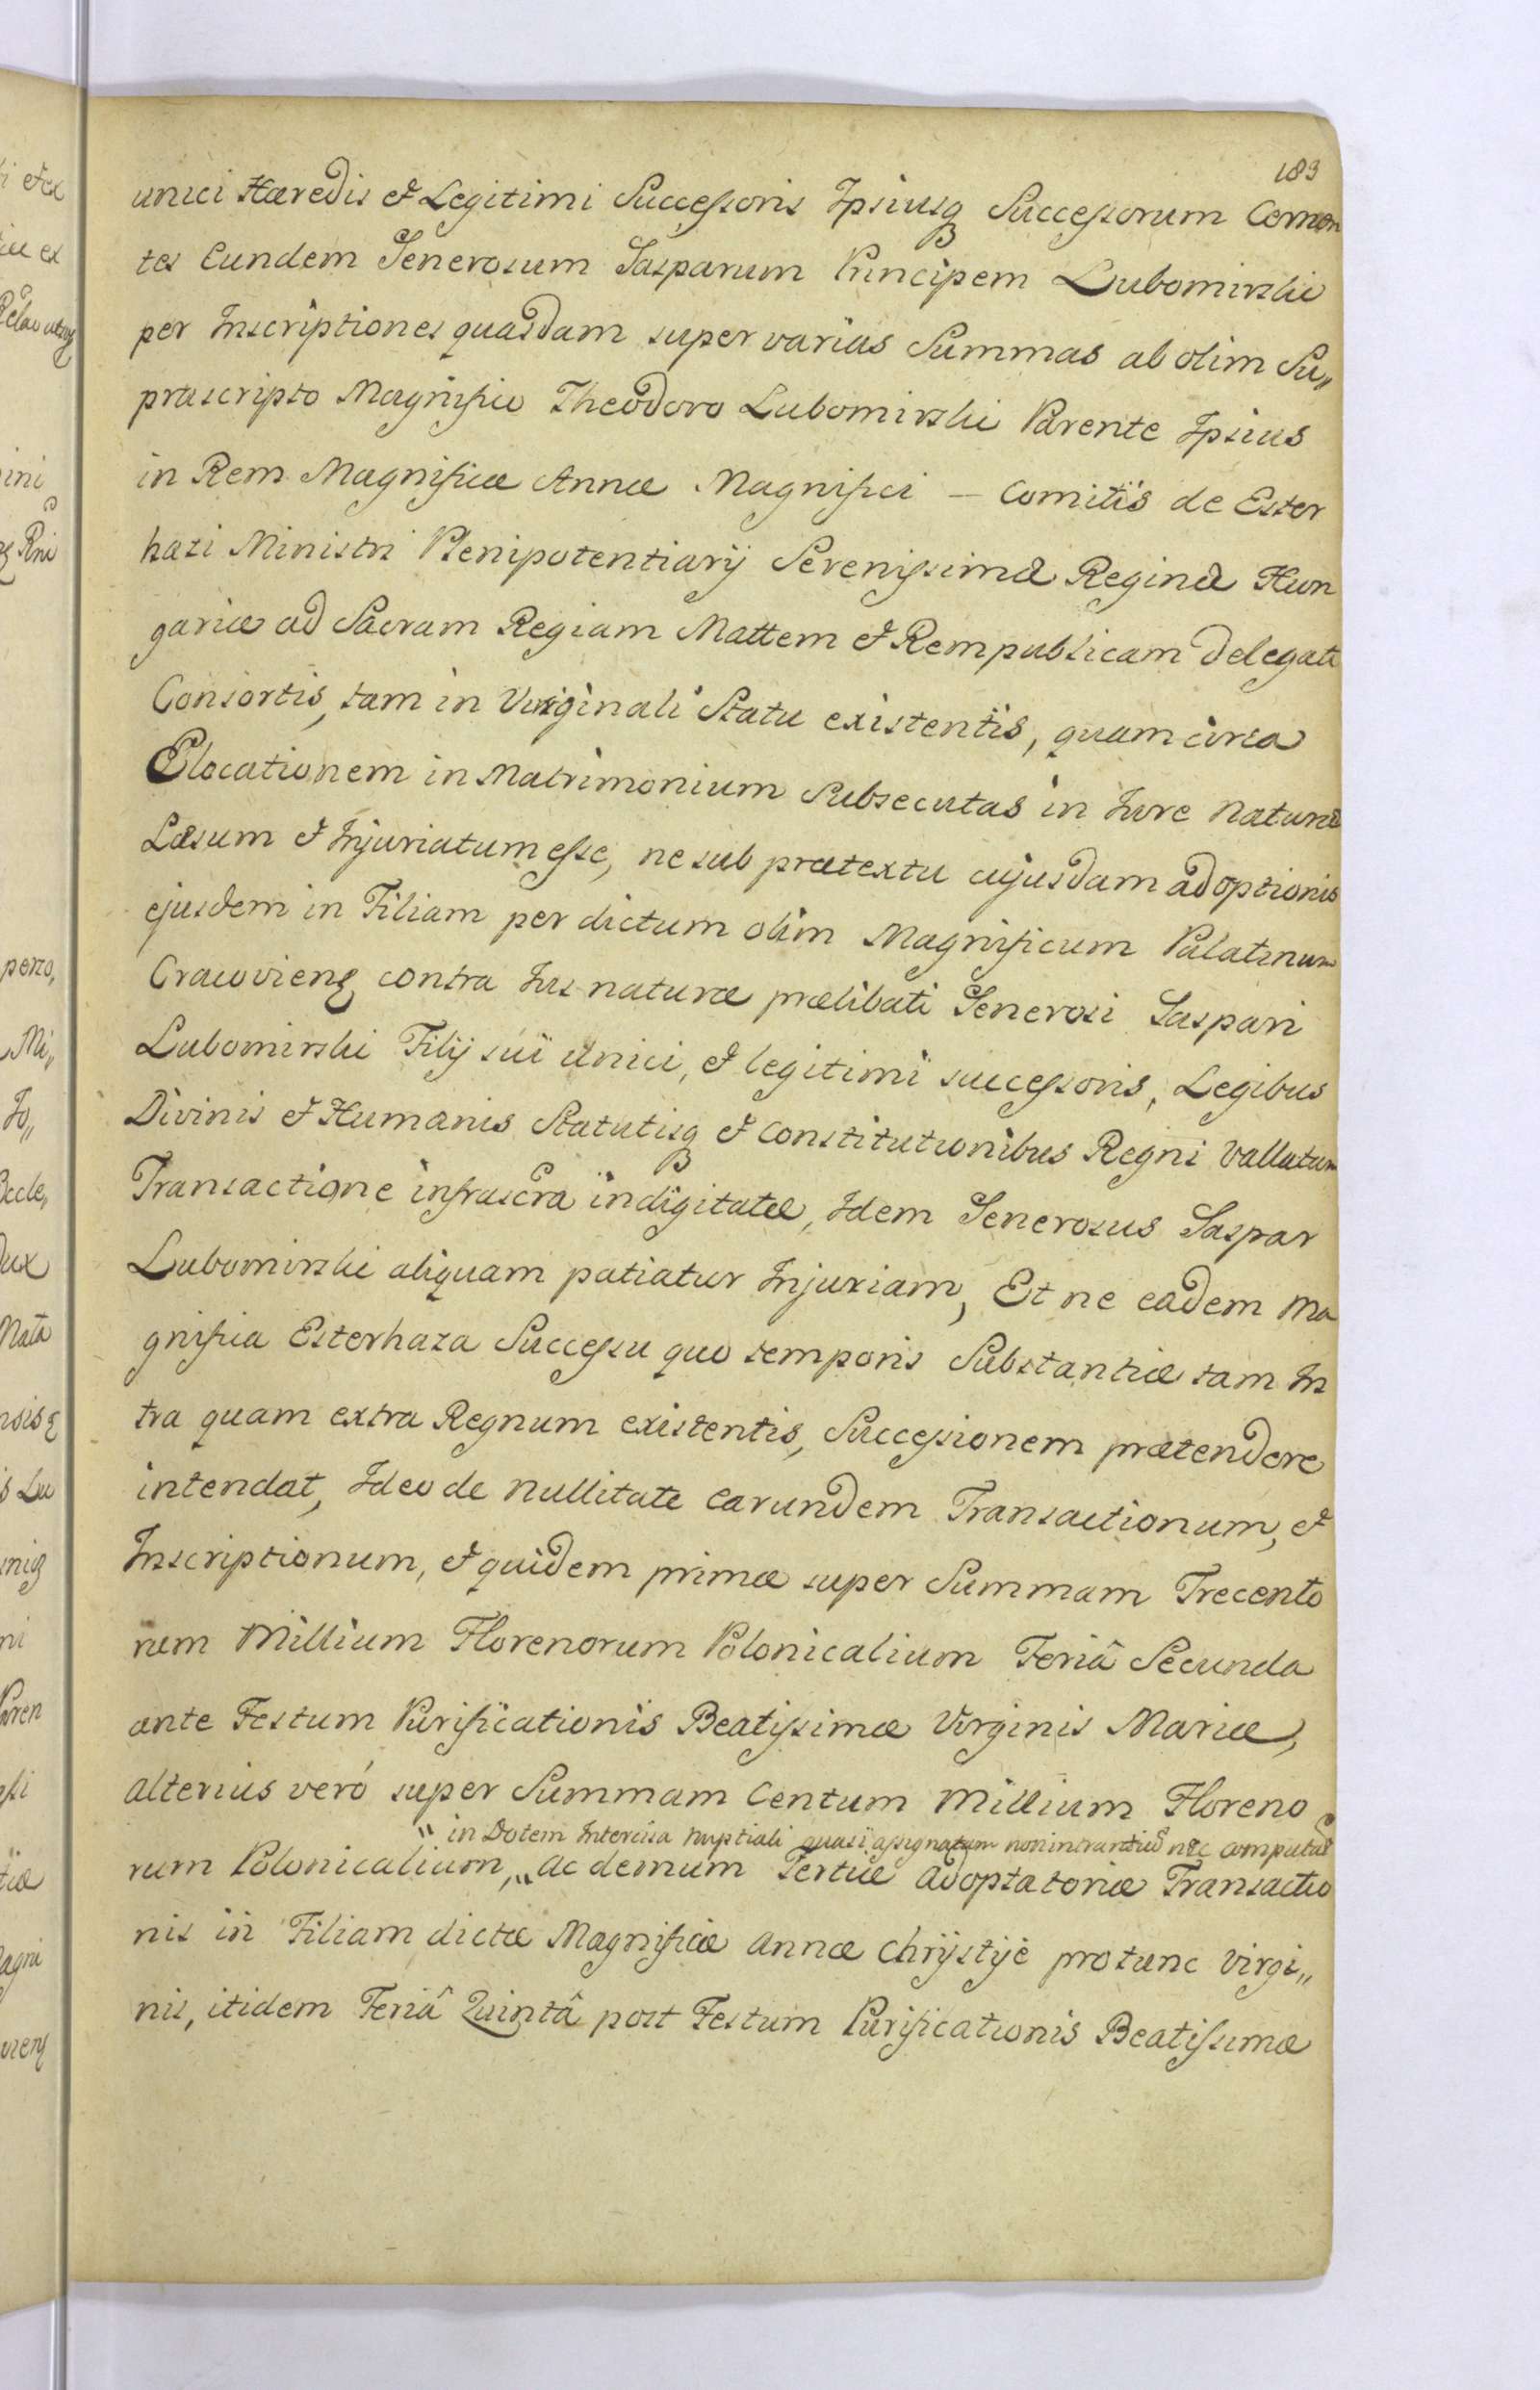 183
unici Hæredis et Legitimi Successoris Ipsiusq Successorum Cernen
tes Eundem Generosum Gasparum Principem Lubomirski
per Inscriptiones quasdam super varias Summas ab olim Su„
prascripto Magnifico Theodoro Lubomirski Parente Ipsius
in Rem Magnificæ Annæ Magnifici — Comitis de Ester
hazi Ministri Plenipotentiarij Serenissimæ Reginæ Hun
gariæ ad Sacram Regiam Mattem et Rempublicam delegati
Consortis, tam in Virginali Statu existentis, quam circa
Elocationem in Matrimonium Subsecutas in Jure Naturæ
Læsum et Injuriatum esse, ne sub prætextu cujusdam adoptionis
ejusdem in Filiam per dictum olim Magnificum Palatinum
Cracovien contra Jus naturæ prælibati Generosi Gaspari
Lubomirski Filij sui unici, et legitimi successoris, Legibus
Divinis et Humanis Statutisq et Constitutionibus Regni Vallatum
Transactione infrascra indigitatæ, Idem Generosus Gaspar
Lubomirski aliquam patiatur Injuriam, Et ne eadem Ma
gnifica Esterhaza Successu quo temporis Substantiæ tam In
tra quam extra Regnum existentis, Successionem prætendere
intendat, Ideo de Nullitate earundem Transactionum, et
Inscriptionum, et quidem primæ super Summam Trecento
rum Millium Florenorum Polonicalium Feriâ Secunda
ante Festum Purificationis Beatissimæ Virginis Mariæ,
alterius veró super Summam Centum Millium Floreno
" in Dotem Intercisa Nuptiali quasi assignatam non intrantis nec
rum Polonicalium, „ ac demum Tertiæ Adoptatoriæ Transactio
nis in Filiam dictæ Magnificæ Annæ Chrÿstÿe protunc Virgi„
nis, itidem Feriâ Quintâ post Festum Purificationis Beatissimæ